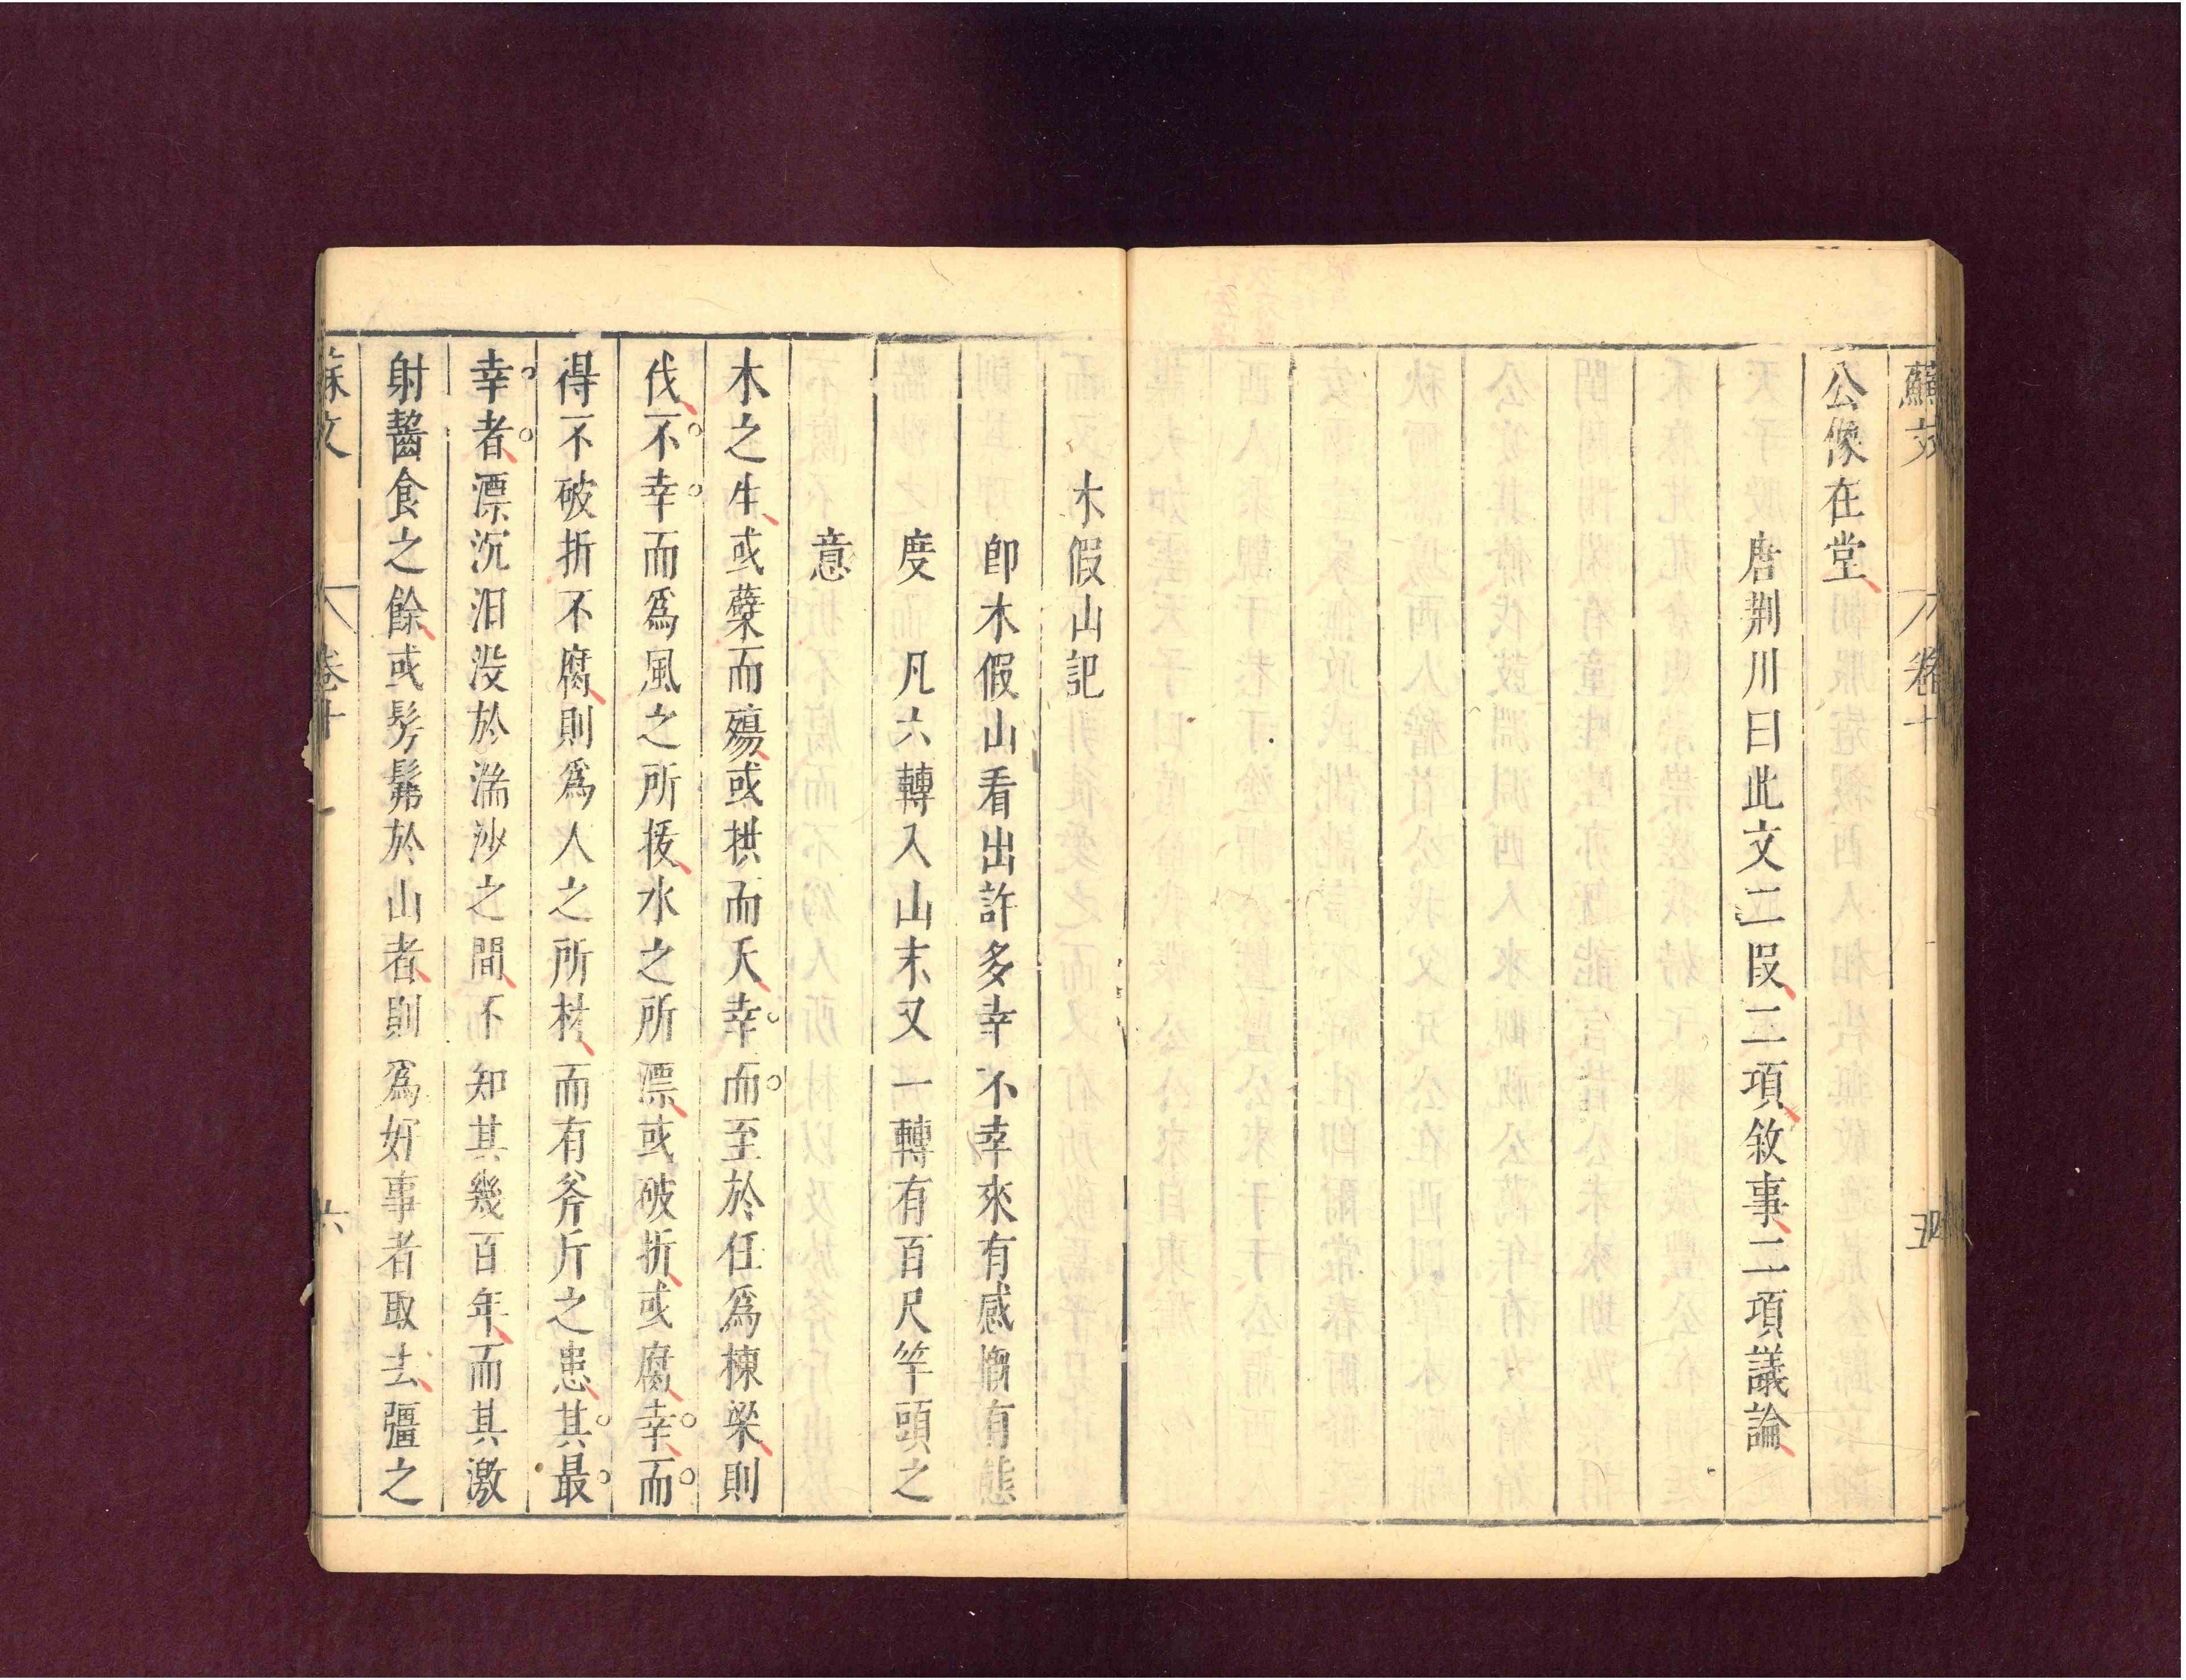 蘇文
卷十
五
公像在堂
唐荆川曰此文二段二項敘事二項議論
木假山記
卽木假山看出許多幸不幸來有感慨有態
度　凡六轉入山末又一轉有百尺竿頭之
意
木之生或櫱而殤或拱而夭幸而至於任爲棟梁則
伐不幸而爲風之所拔水之所漂或破折或腐幸而
得不破折不腐則爲人之所材而有斧斤之患其最
幸者漂沉汨没於湍沙之間不知其幾百年而其激
射齧食之餘或髣髴於山者則爲好事者取去彊之
蘇文
卷十
六